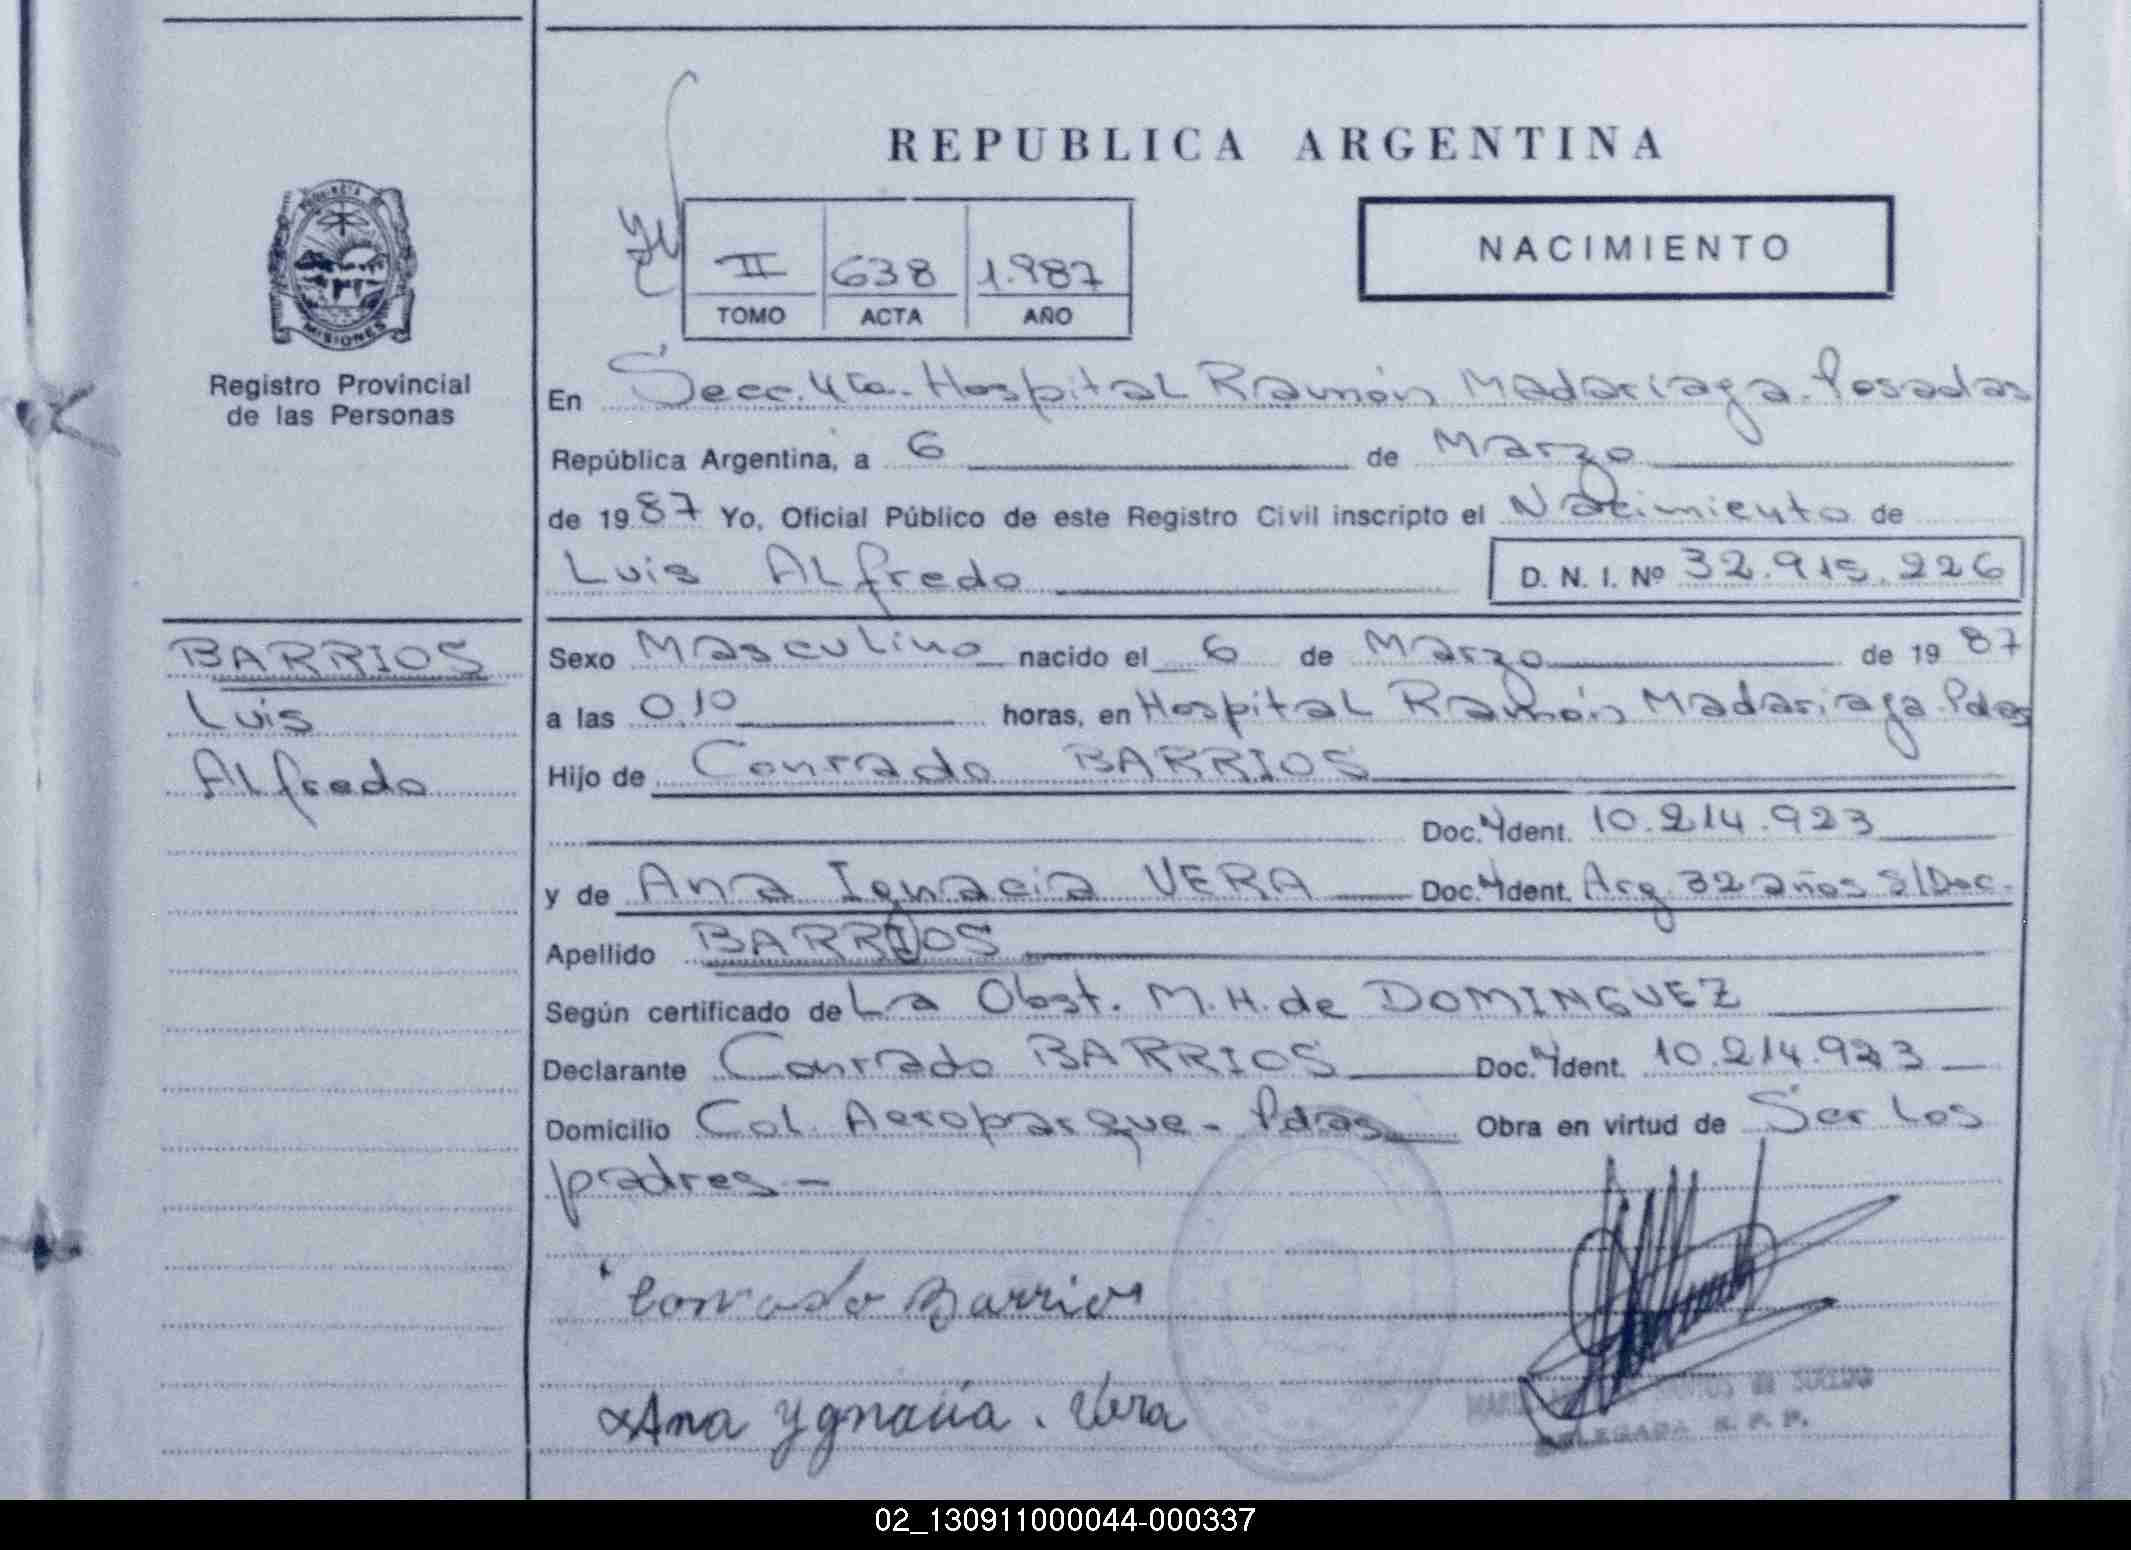 REPUBLICA ARGENTINA
NACIMIENTO
II 638 1.987
TOMO ACTA AÑO
MISIONES
Registro Provincial
de las Personas
En Secc. 4ta. Hospital Ramón Madariaga. Posadas
República Argentina, a 6 de Marzo
de 1987 Yo, Oficial Público de este Registro Civil inscripto el Nacimiento de
Luis Alfredo D. N. I. Nº 32.915.226
BARRIOS
Luis
Alfredo
Sexo Masculino nacido el 6 de Marzo de 1987
a las 0.10 horas, en Hospital Ramón Madariaga. Pdas
Hijo de Conrado BARRIOS
Doc. Ident. 10.214.923
y de Ana Ignacia VERA Doc. Ident. Arg. 32 años S/Doc.
Apellido BARRIOS
Según certificado de La Obst. M.H. de DOMINGUEZ
Declarante Conrado BARRIOS Doc. Ident. 10.214.923
Domicilio Col. Aeroparque - Pdas Obra en virtud de Ser los
padres -
Conrado Barrios
Ana Ygnacia. Vera
DELEGADA R. P. P.
02_130911000044-000337